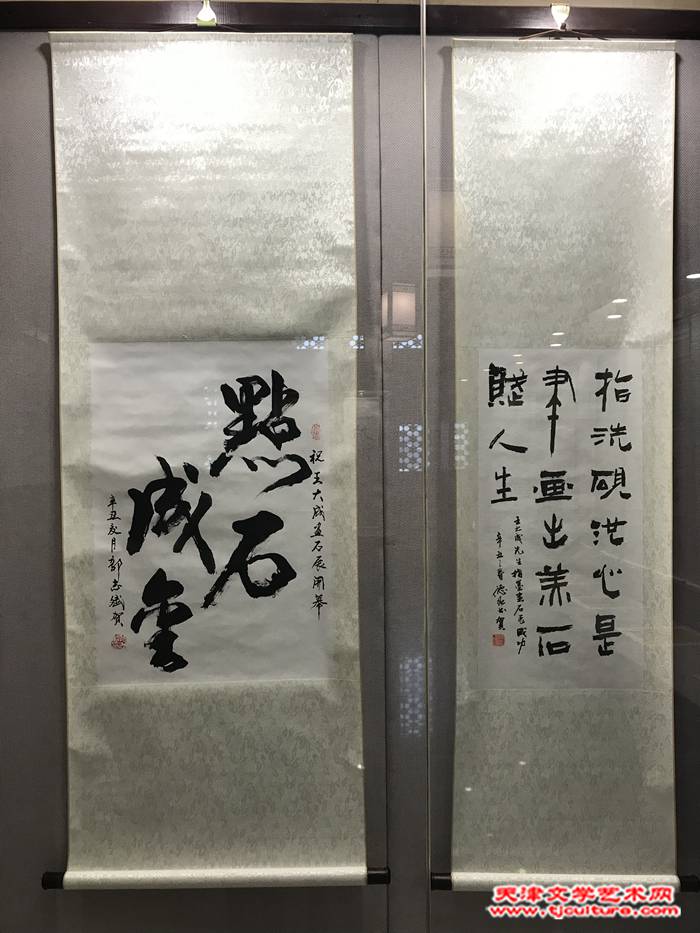 點石
成金
祝王大成画石展開幕
辛丑夏月郭志斌賀
指洗硯洪心是
聿画出美石
賤人生
王大成先生指墨画石展成功
辛丑之夏德
天津文学艺术网
www.tjculture.com